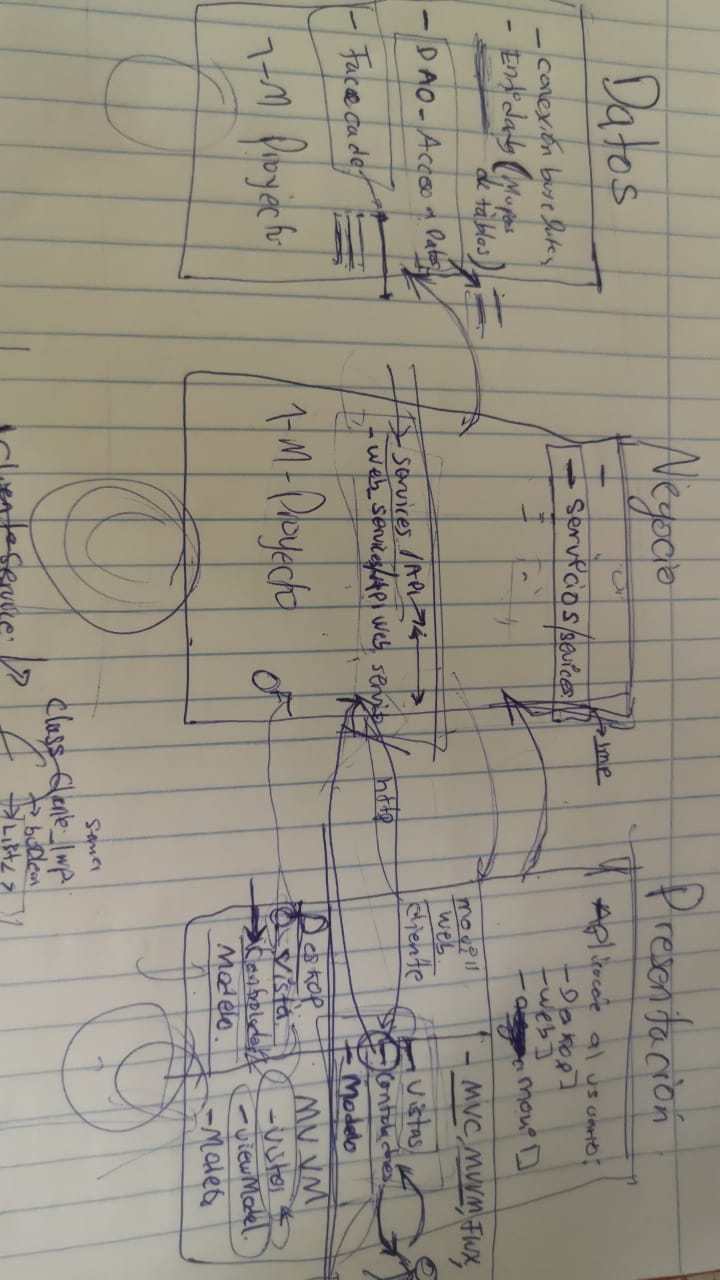 Datos
- conexión base Datos
- Entidades (Mapas
de tablas)
- DAO - Acceso a Datos
- Facecade
1-M Proyecto
Negocio
- servicios/sevices
imp
- services /API
- web_services/Api web servic
1-M-Proyecto
http
Presentación
Aplicacióe al usuario:
- Deskop]
- web]
- movil]
movil
web
cliente
- MVC, MVVM, FWX,
- Vistas
- Controladores
- Modelo
Deskop
- Vista
Controlador
Modelo.
MVVM
- Vistas
- ViewModel.
- Modelo
Class Cliente_Imp.
→ boolean
→ List< >
IClienteService: